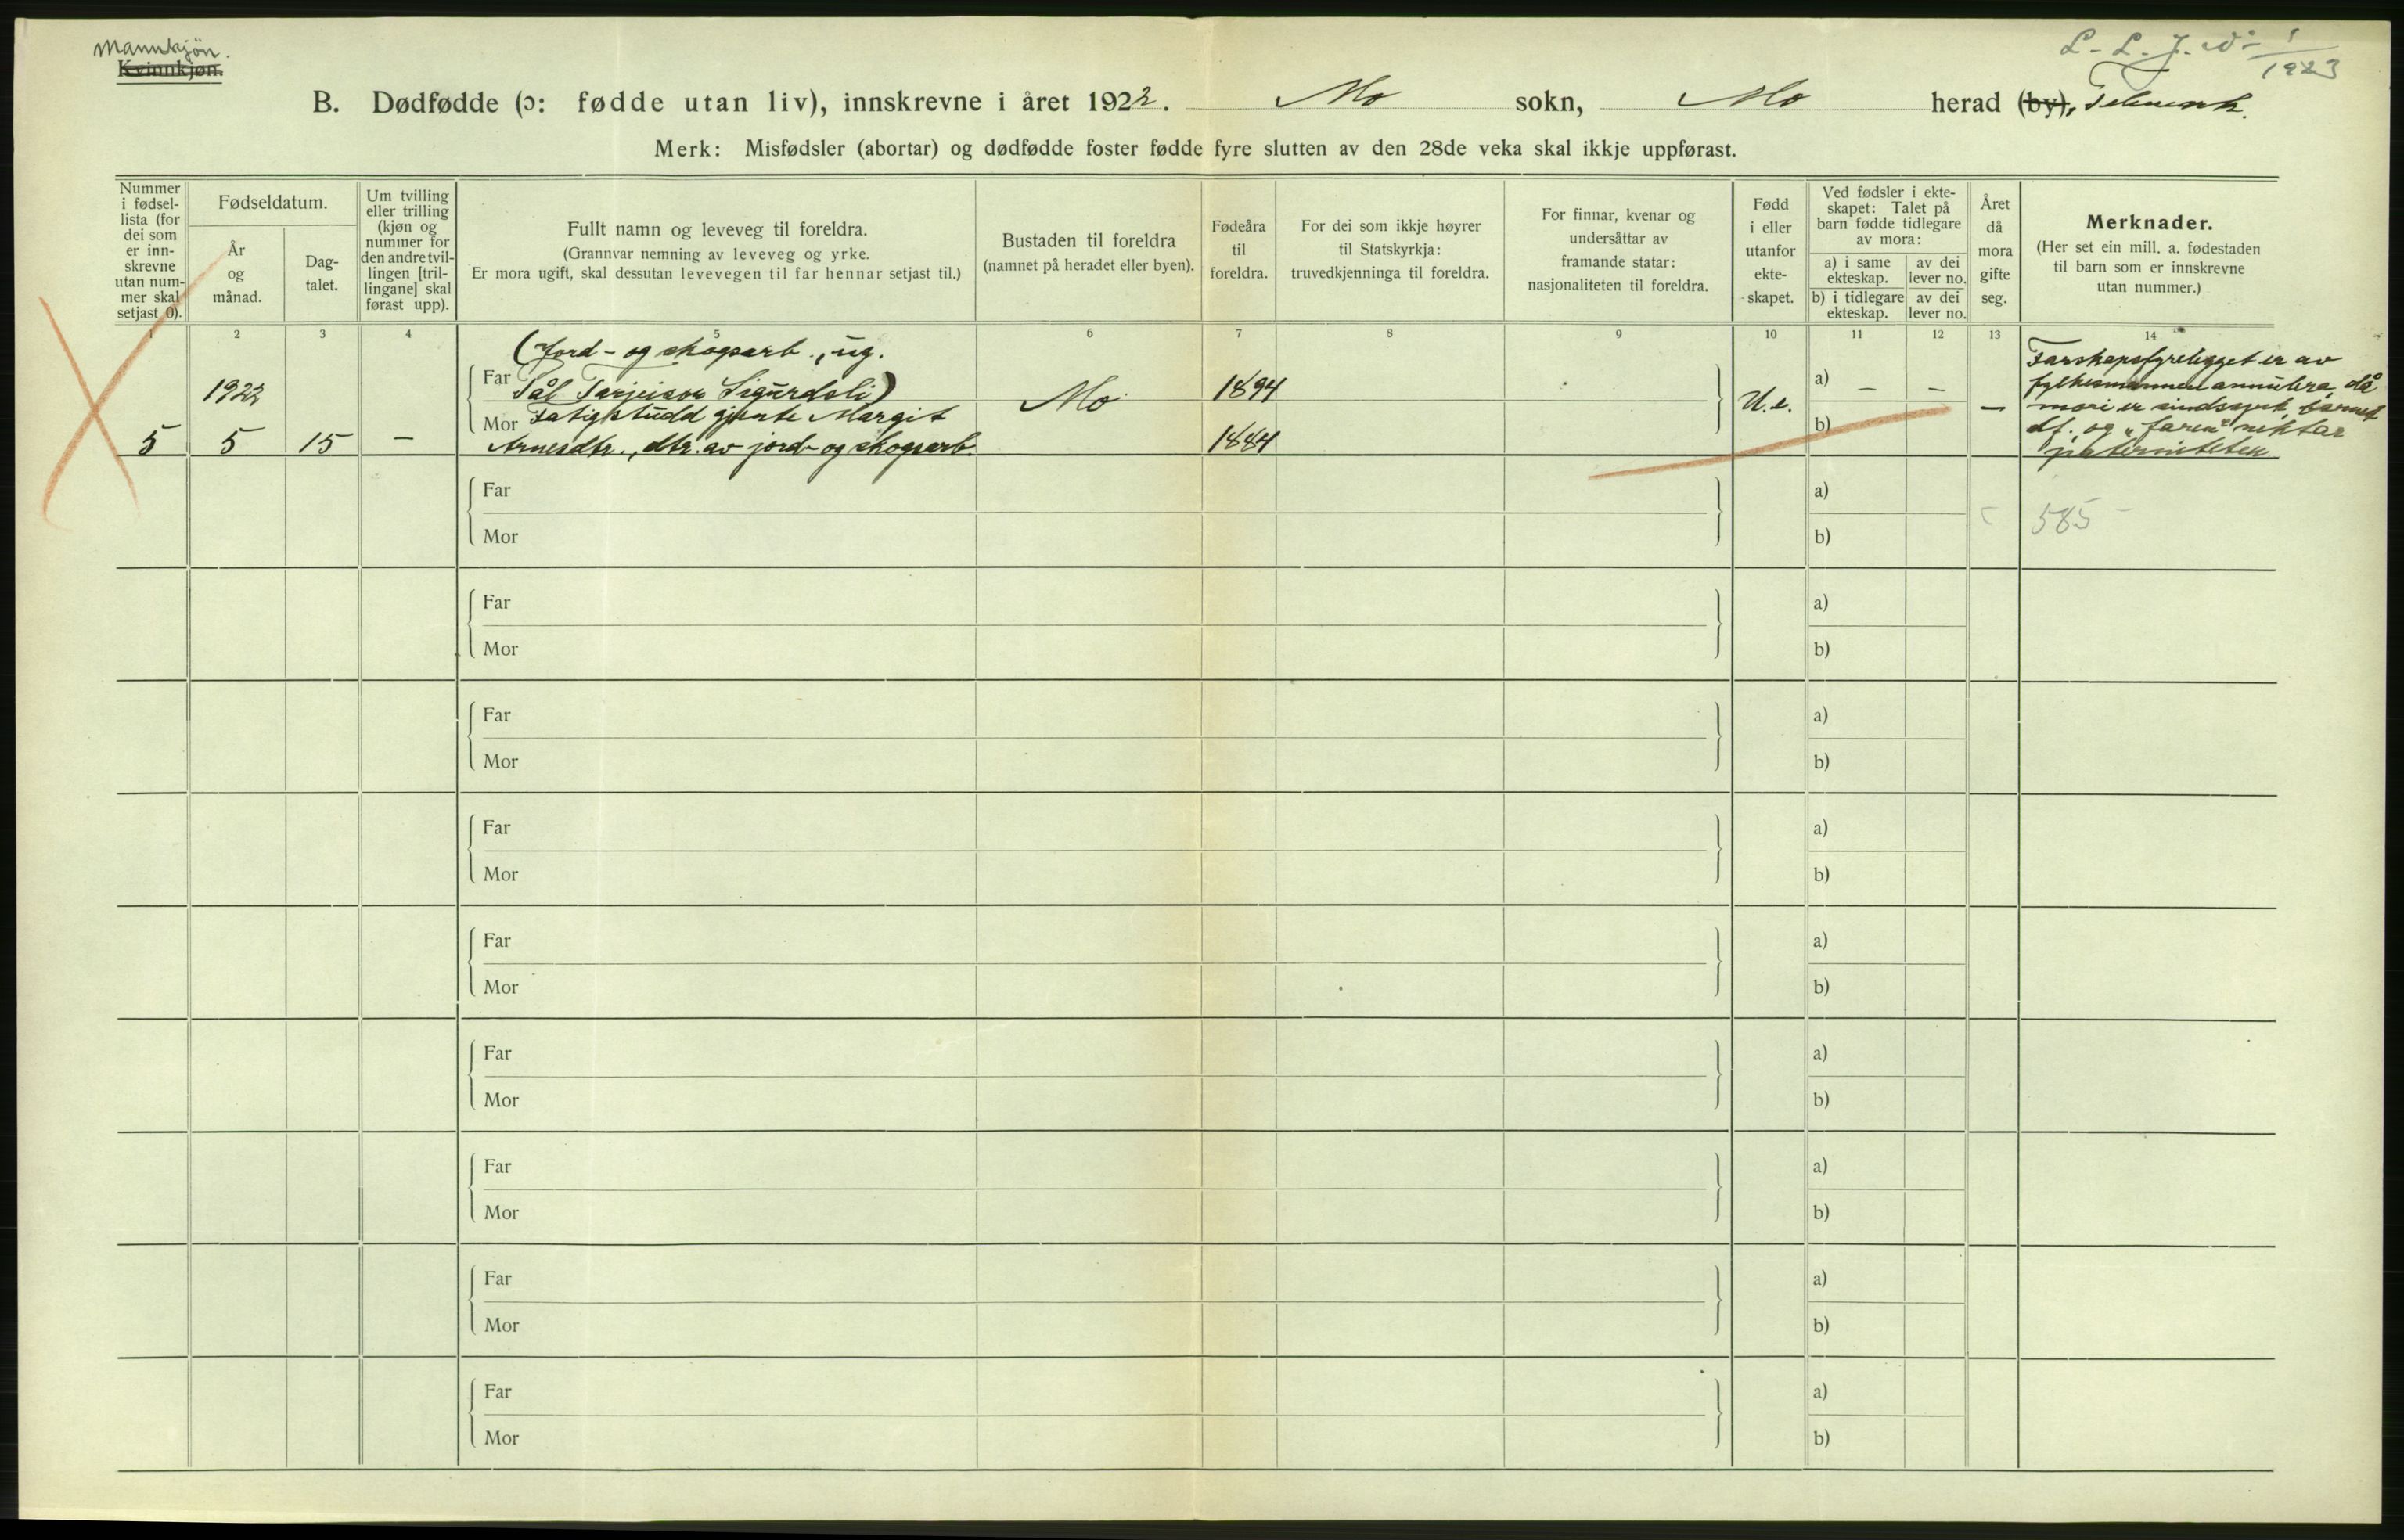 Mannkjön.
Kvinnkjøn.
L. - L. J. W. 1/1923
B. Dødfødde (ɔ: fødde utan liv), innskrevne i året 1922. Mo sokn, Mo herad (by), Telemark.
Merk: Misfødsler (abortar) og dødfødde foster fødde fyre slutten av den 28de veka skal ikkje uppførast.
Nummer i fødsel-lista (for dei som er inn-skrevne utan num-mer skal setjast 0).
Fødseldatum.
År og månad.
Dag-talet.
Um tvilling eller trilling (kjøn og nummer for den andre tvil-lingen [tril-lingane] skal førast upp).
Fullt namn og leveveg til foreldra.
(Grannvar nemning av leveveg og yrke.
Er mora ugift, skal dessutan levevegen til far hennar setjast til.)
Bustaden til foreldra
(namnet på heradet eller byen).
Fødeåra til foreldra.
For dei som ikkje høyrer til Statskyrkja: truvedkjenninga til foreldra.
For finnar, kvenar og undersåttar av framande statar: nasjonaliteten til foreldra.
Født i eller utanfor ekte-skapet.
Ved fødsler i ekte-skapet: Talet på barn fødde tidlegare av mora:
a) i same ekteskap.
av dei lever no.
b) i tidlegare ekteskap.
av dei lever no.
Året då mora gifte seg.
Merknader.
(Her set ein mill. a. fødestaden til barn som er innskrevne utan nummer.)
1 2 3 4 5 6 7 8 9 10 11 12 13 14
(Jord- og skogsarb., ug.
Far Pål Tarjeison Sigurdsli)
Mor Fatigstudd gjente Margit
Arnesdtr., dtr. av jord- og skogsarb.
1922
5 5 15 –
Mo
1894
1884
U. e.
a) – –
b)
–
Farskapsfyrelegget er av
fylkesmannen annulera, då
mori er sindssjuk, barnet
df. og "faren" nektar
paterniteten
Far a)
Mor b)
585
Far a)
Mor b)
Far a)
Mor b)
Far a)
Mor b)
Far a)
Mor b)
Far a)
Mor b)
Far a)
Mor b)
Far a)
Mor b)
Far a)
Mor b)